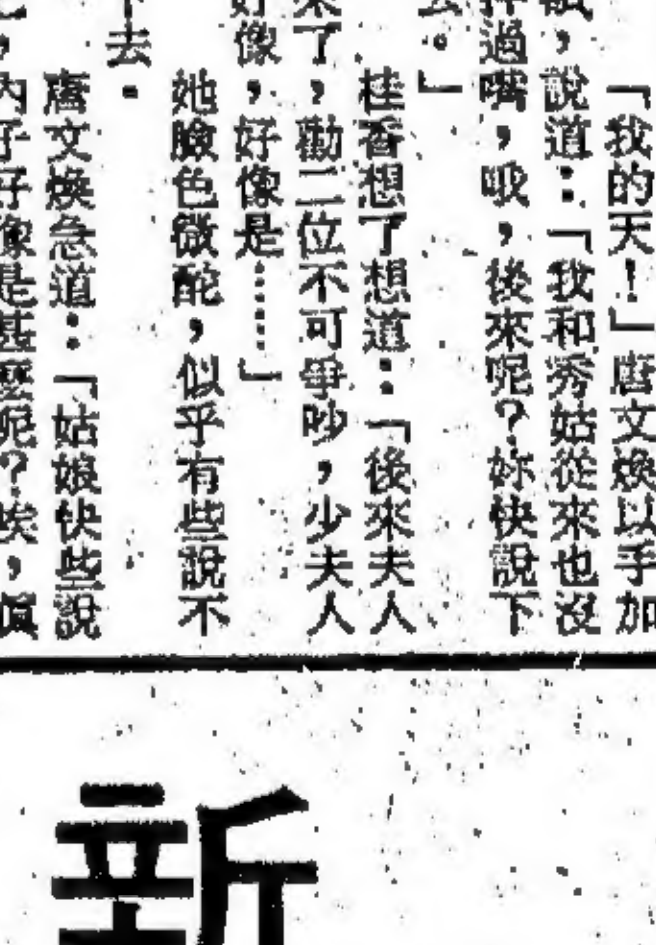 「我的天！」唐文煥以手加
額，說道：「我和秀姑從來也沒
拌過嘴，哦，後來呢？妳快說下
去。」
桂香想了想道：「後來夫人
來了，勸二位不可爭吵，少夫人
好像，好像是……」
她臉色微酡，似乎有些說不
下去。
唐文煥急道：「姑娘快些說
，內子好像是甚麼呢？唉，真
新